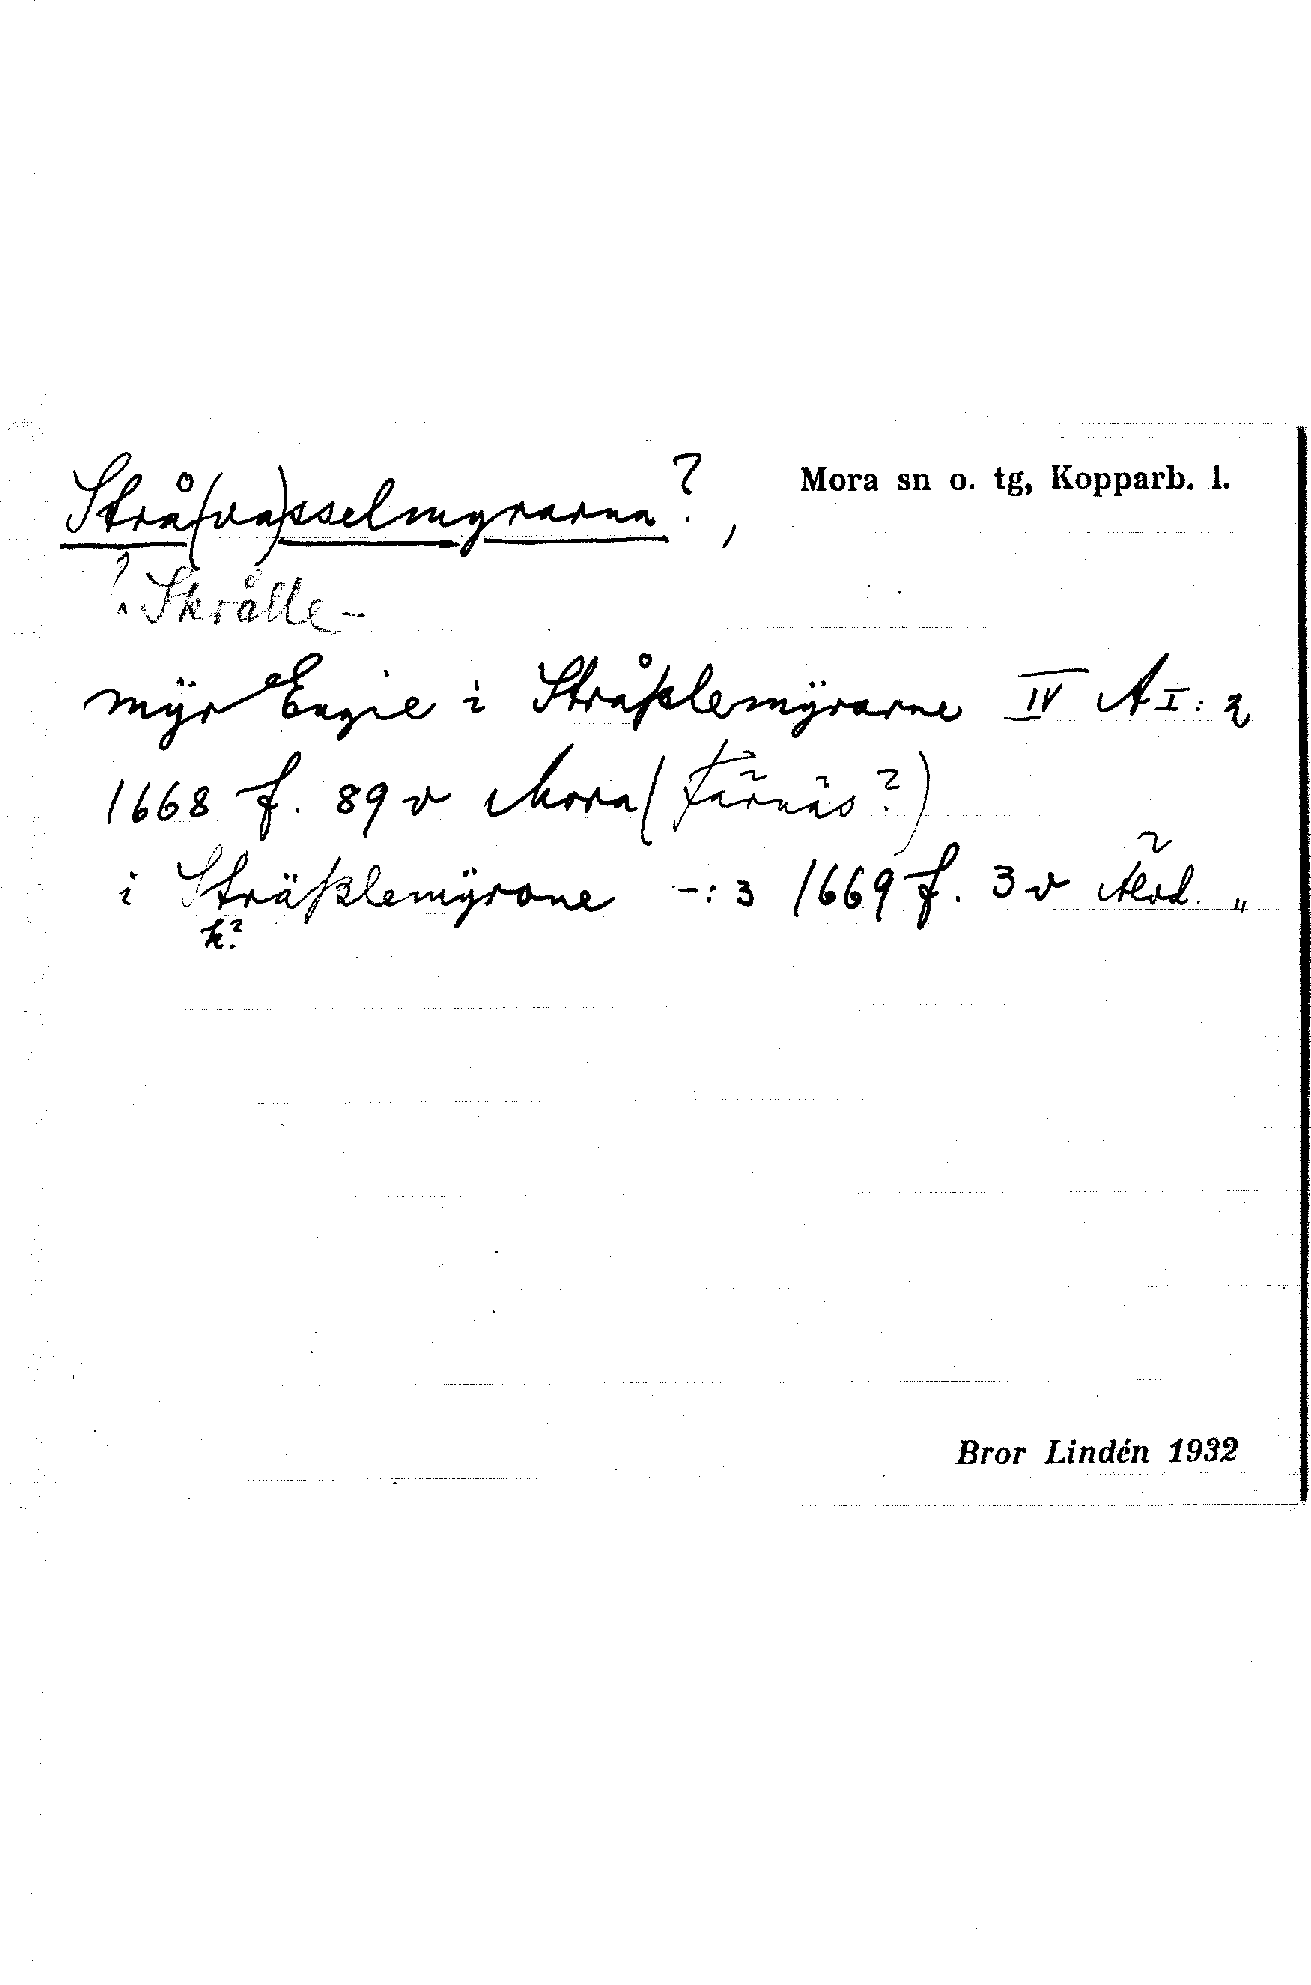 Strå(va)sselmyrarna?, Mora sn o. tg, Kopparb. l.
? Skrålle-
mÿr Engie i Stråsslemÿrarne IV A I:2
1668 f. 89 v Mora (Färnäs?)
i Strässlemÿrone -:3 1669 f. 3 v „
k?
Bror Lindén 1932